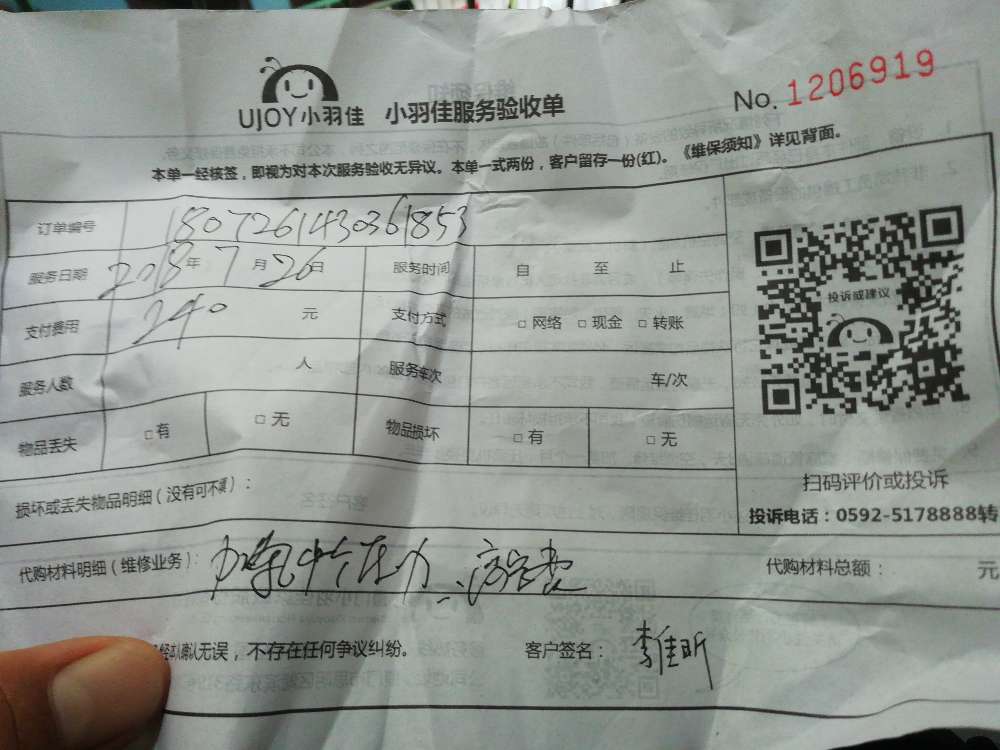 UJOY小羽佳 小羽佳服务验收单 No. 1206919
本单一经核签，即视为对本次服务验收无异议。本单一式两份，客户留存一份(红)。《维保须知》详见背面。
订单编号 1807261430361853
服务日期 2018年7月26日 服务时间 自 至 止
支付费用 240 元 支付方式 □ 网络 □ 现金 □ 转账
服务人数 人 服务车次 车/次
物品丢失 □ 有 □ 无 物品损坏 □ 有 □ 无
投诉或建议
扫码评价或投诉
损坏或丢失物品明细（没有可不填）：
投诉电话：0592-5178888转
代购材料明细（维修业务）： 压力 费 代购材料总额： 元
确认无误，不存在任何争议纠纷。 客户签名： 李佳昕